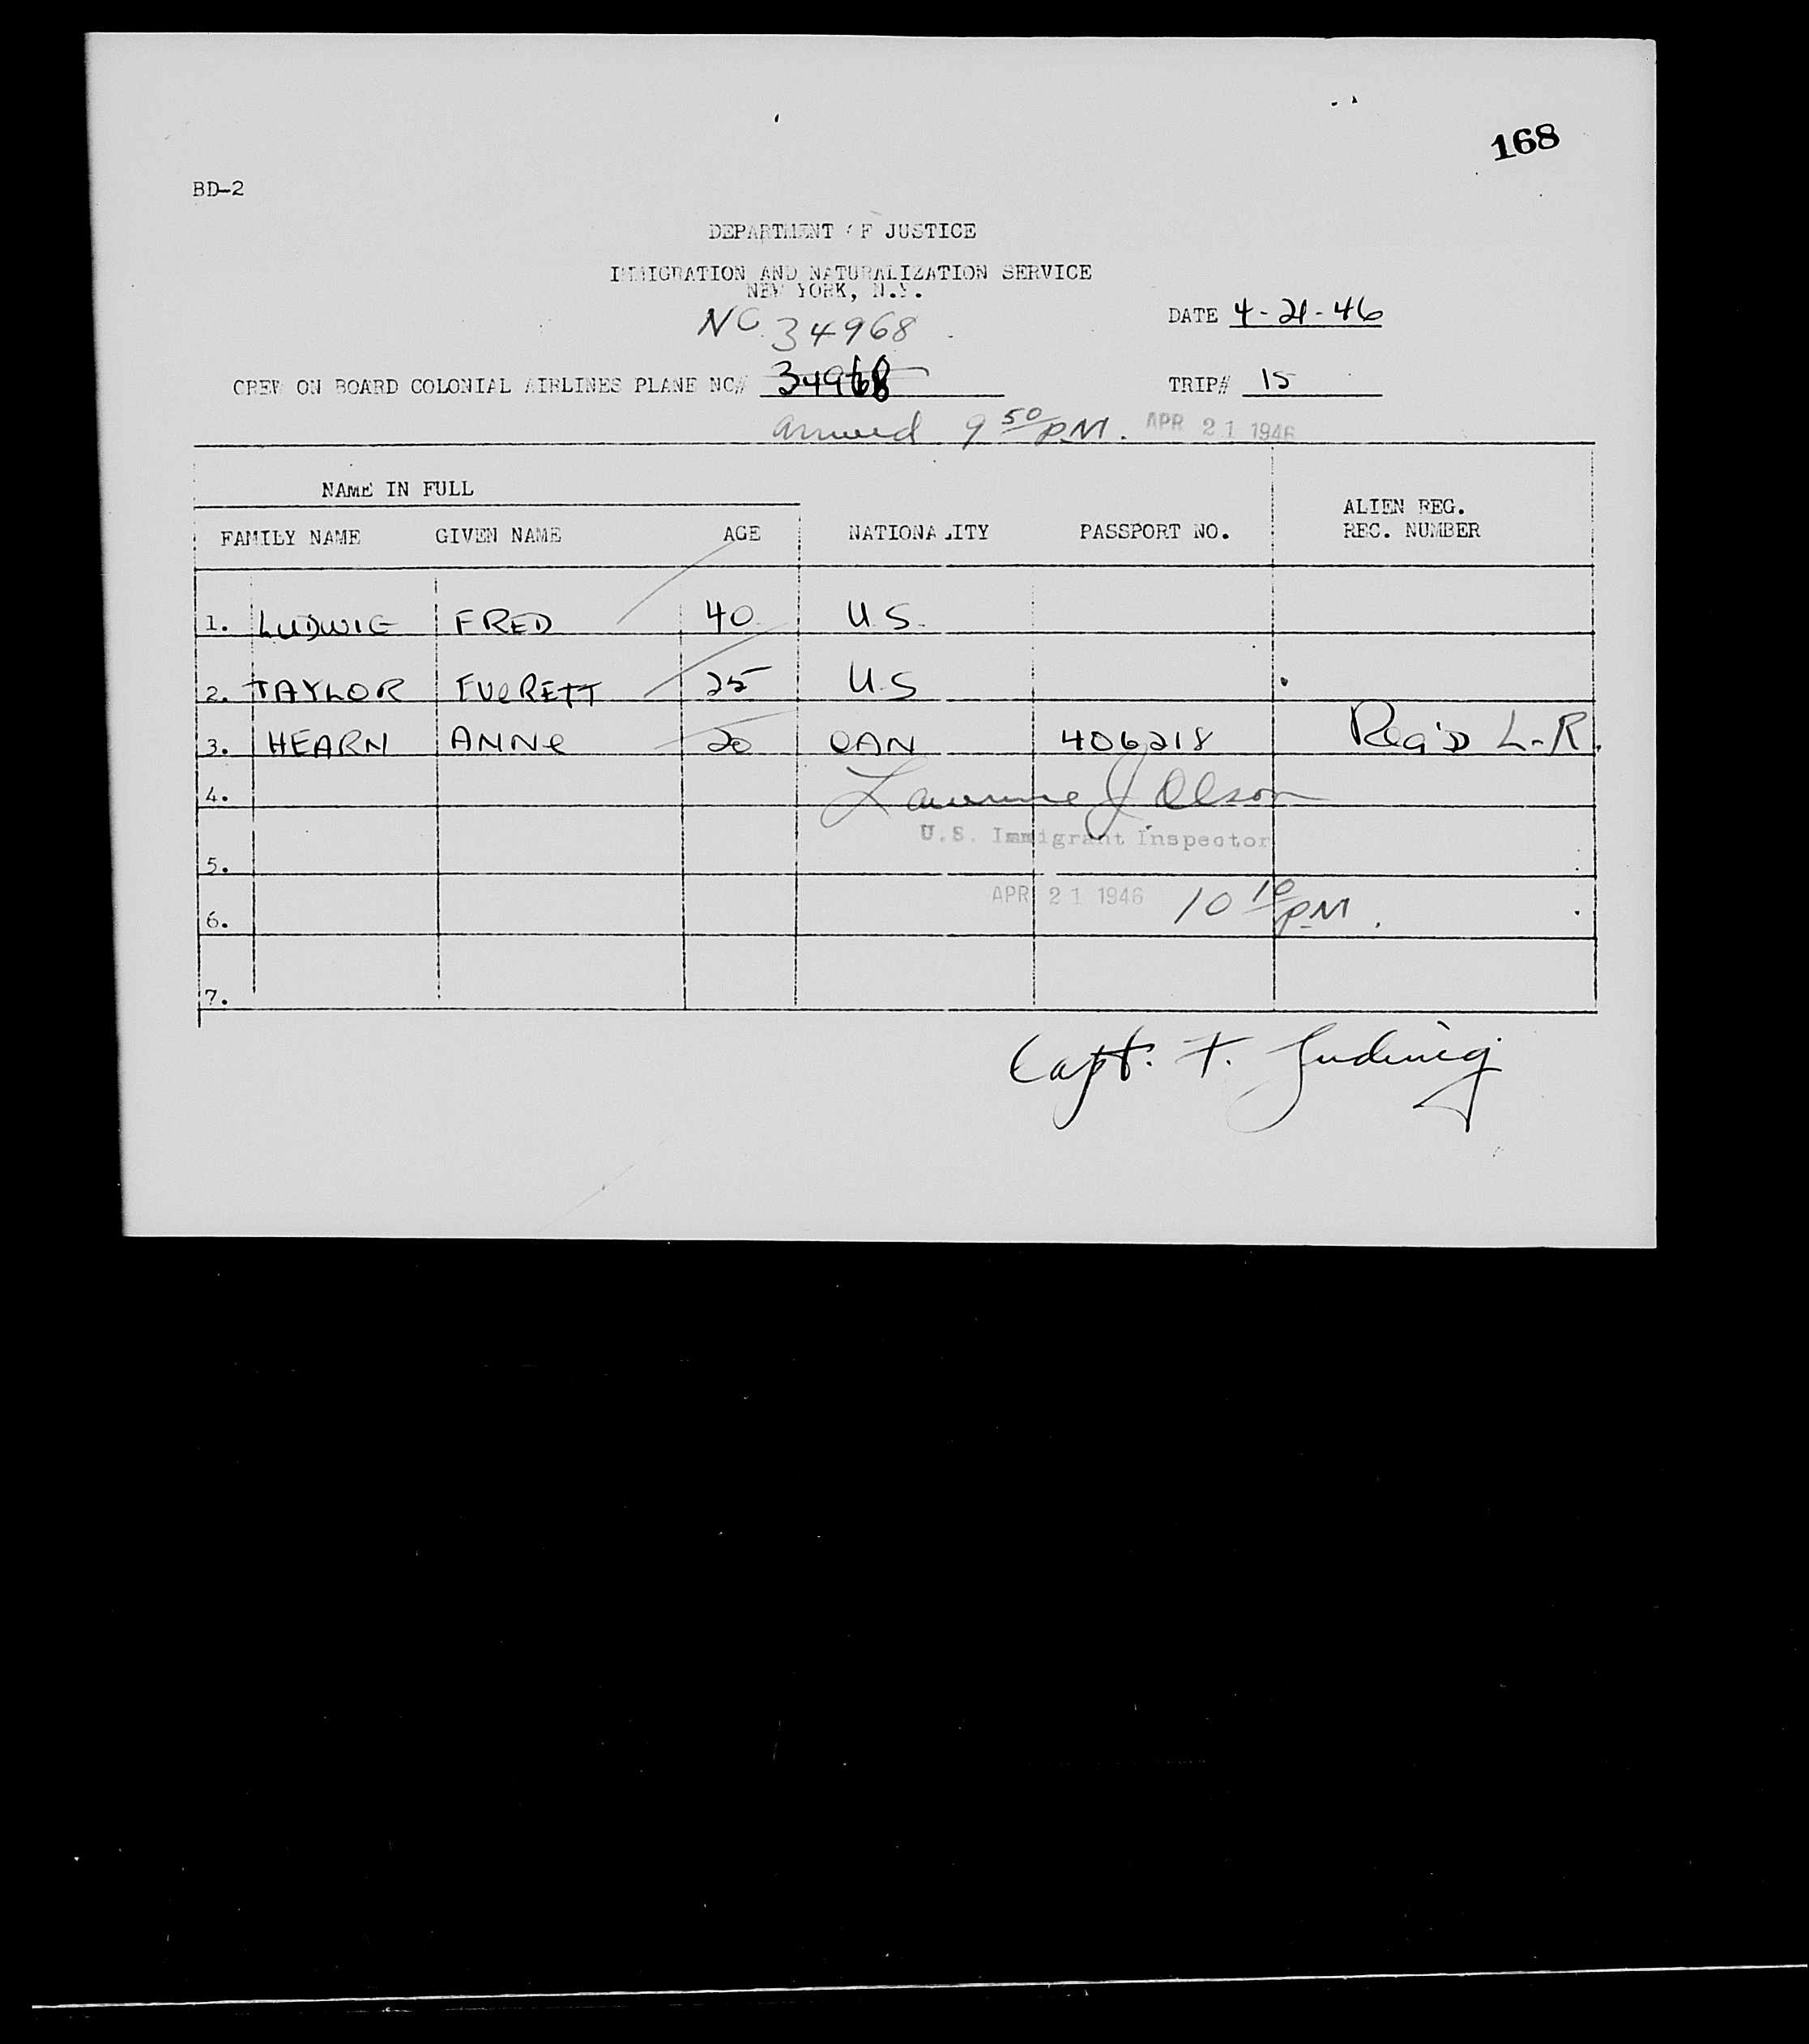 168
BD-2
DEPARTMENT OF JUSTICE
IMMIGRATION AND NATURALIZATION SERVICE
NEW YORK, N.Y.
NC 34968
DATE 4-21-46
CREW ON BOARD COLONIAL AIRLINES PLANE NC# 34968
TRIP# 15
arrived 9 50 PM. APR 21 1946
NAME IN FULL
FAMILY NAME GIVEN NAME AGE NATIONALITY PASSPORT NO. ALIEN REG. REC. NUMBER
1. LUDWIG FRED 40 U.S.
2. TAYLOR EVeRETT 25 U.S
3. HEARN ANNe 20 CAN 406218 Reg'D L-R.
4.
Lawrence J. Olson
U.S. Immigrant Inspector
5.
APR 21 1946 10 10 PM.
6.
7.
Capt. F. Ludwig